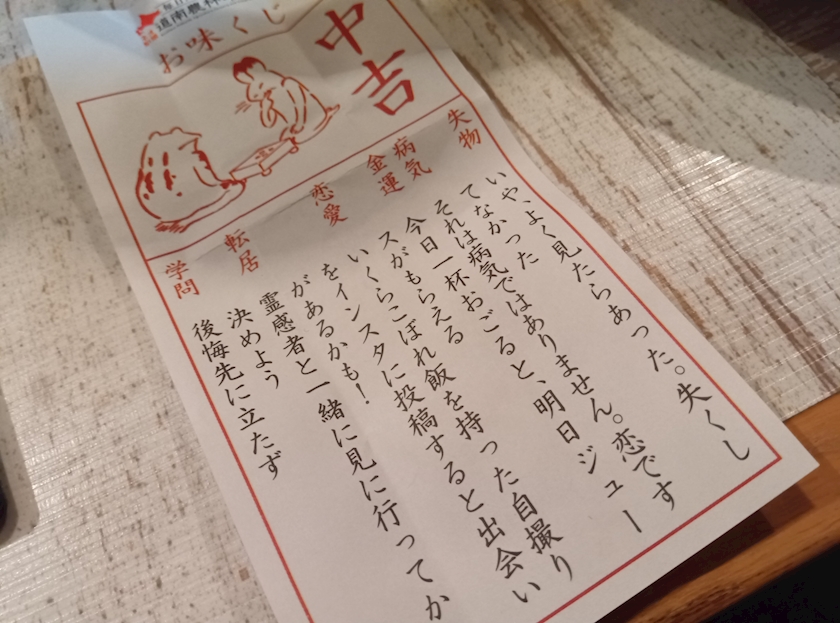 道南農林
お味くじ
中吉
失物
いや、よく見たらあった。失くし
ていなかった
病気
それは病気ではありません。恋です
金運
今日一杯おごると、明日ジュー
スがもらえる
恋愛
いくらこぼれ飯を持った自撮り
をインスタに投稿すると出会い
があるかも!
転居
霊感者と一緒に見に行ってか
決めよう
学問
後悔先に立たず